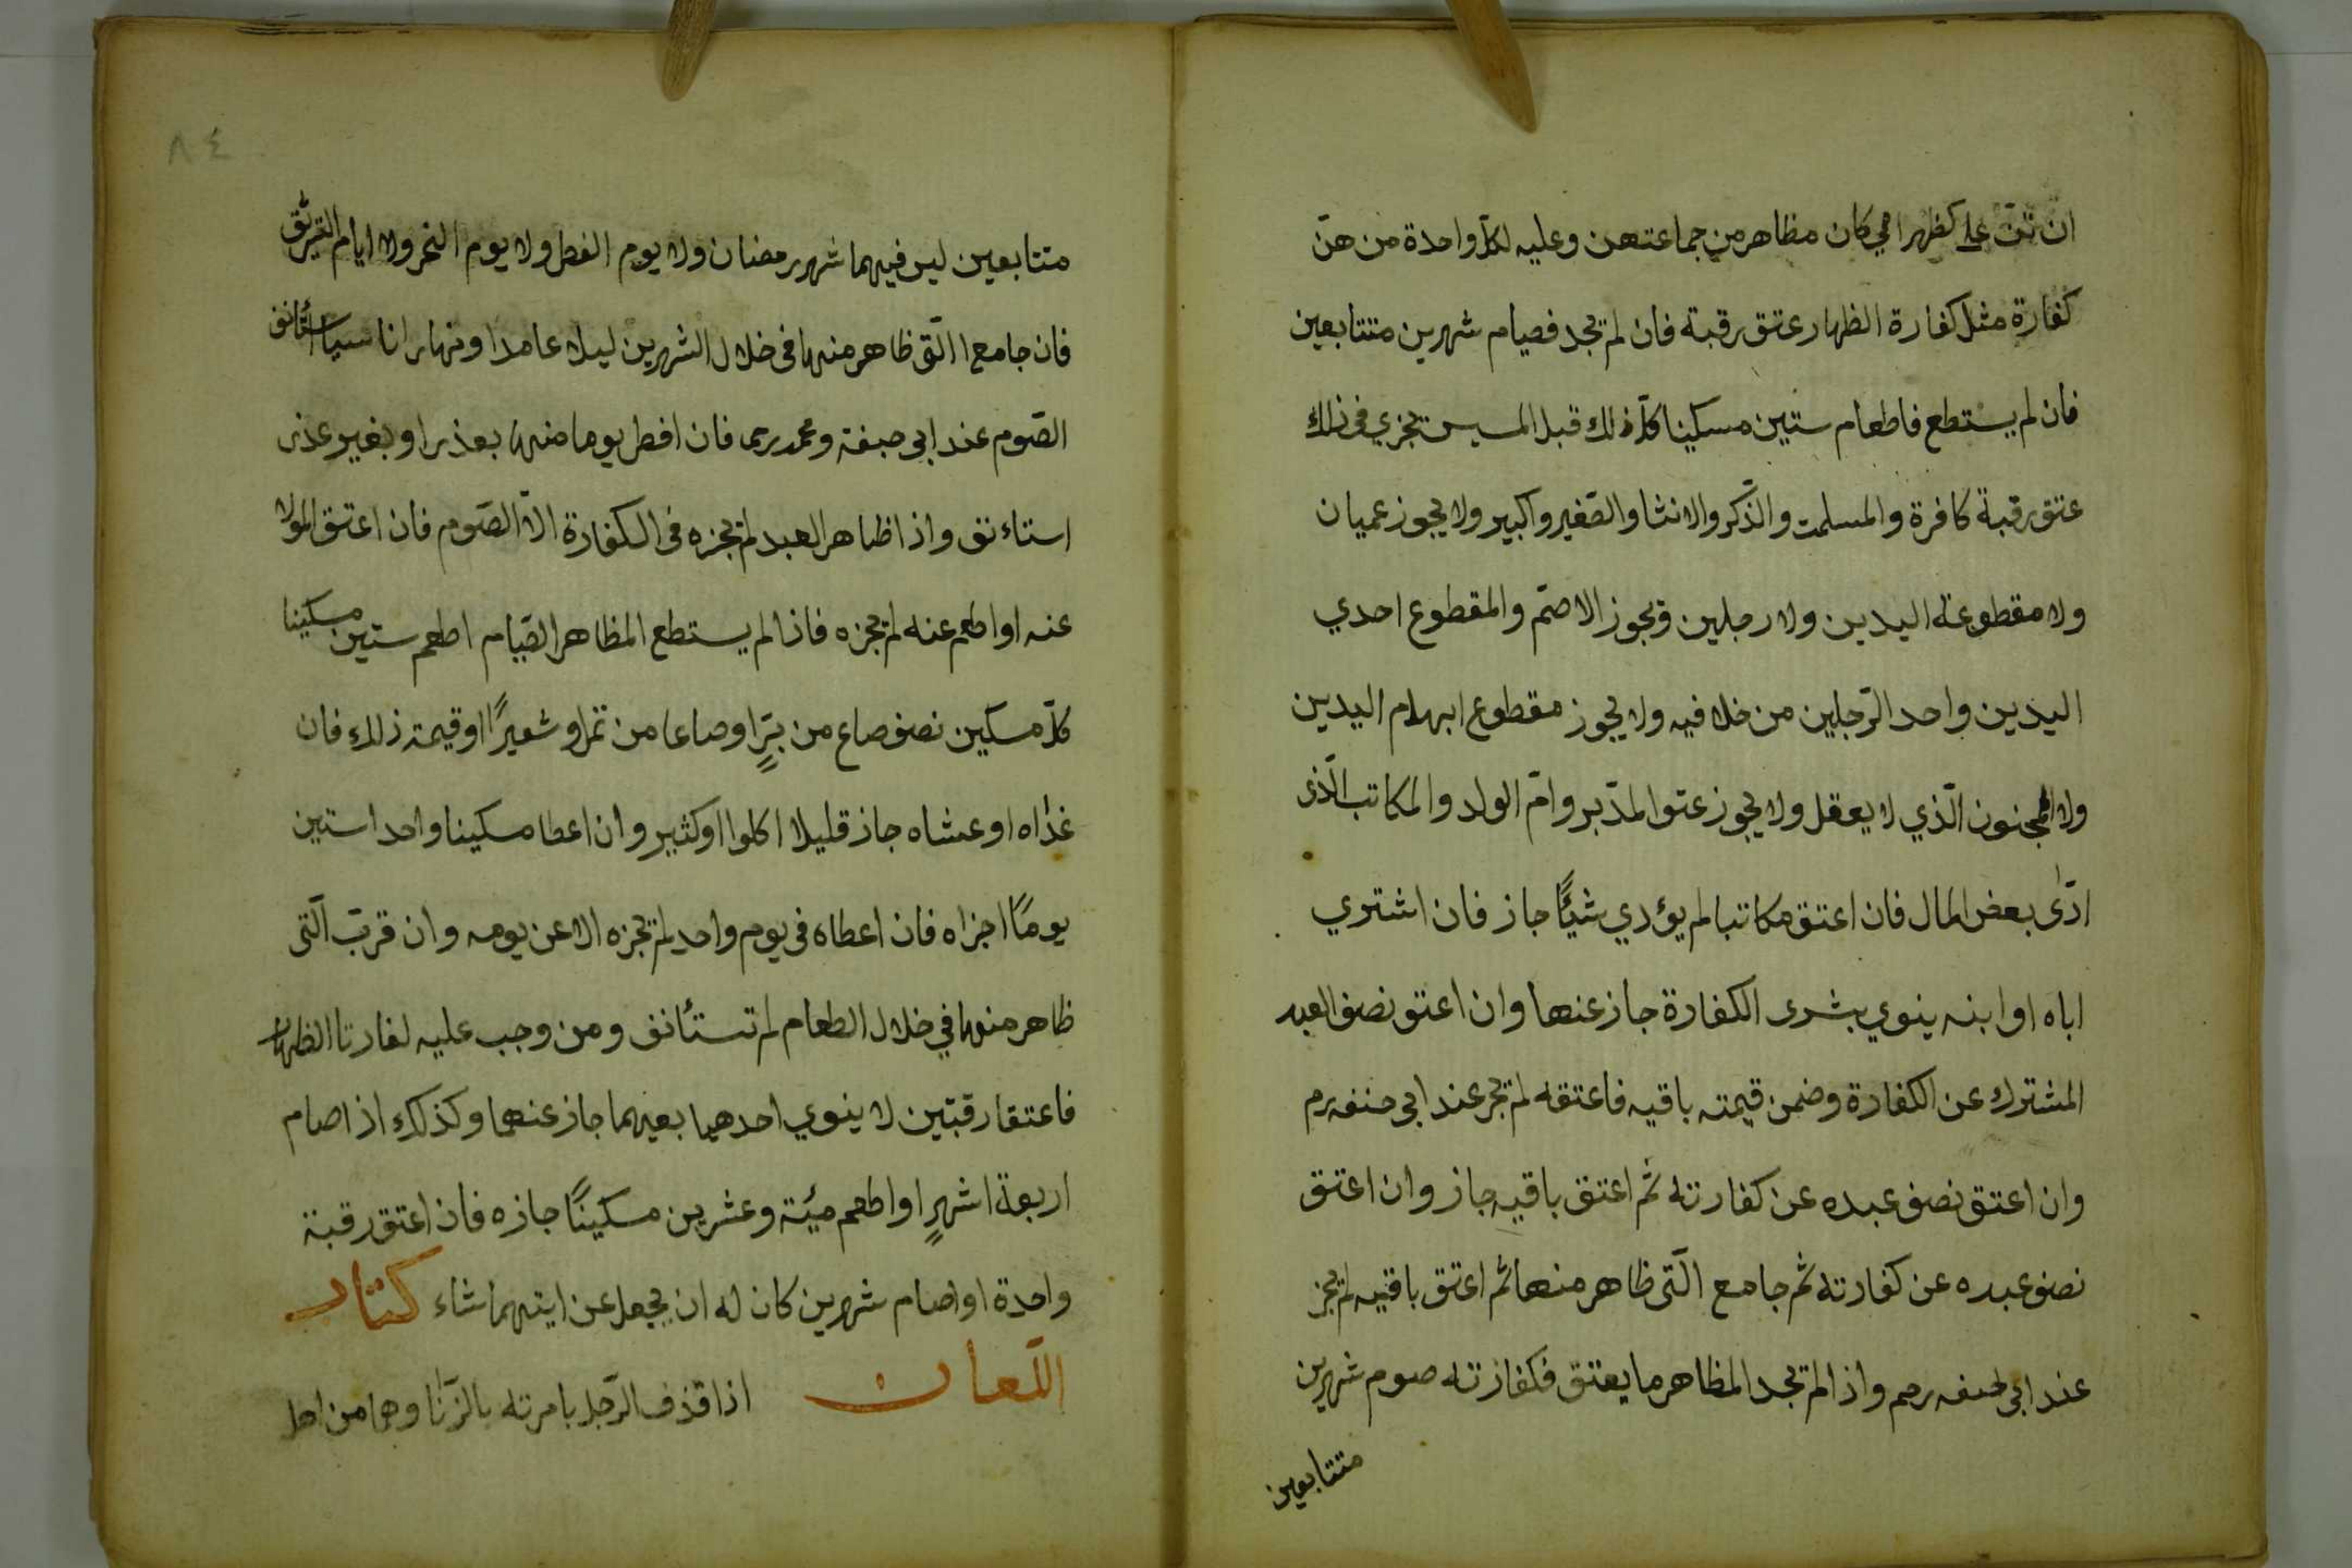 ان تن على كظهر امي كان مظاهر من جماعتهن وعليه لكل واحدة من هن
كفارة مثل كفارة الظهار عتق رقبة فان لم تجد فصيام شهرين متتابعين
فان لم يستطع فاطعام ستين مسكينا كل ذلك قبل المسيس تجزي في ذلك
عتق رقبة كافرة والمسلمت والذّكر والانثا والصّغير واكبير ولا يجوز عميان
ولا مقطوعة اليدين ولا رجلين ويجوز الاصمّ والمقطوع احدي
اليدين واحد الرّجلين من خلا فيه ولا يجوز مقطوع ابهام اليدين
ولا المجنون الّذي لا يعقل ولا يجوز عتق المدّبر وامّ الولد والمكاتب الّذى
ادّى بعض المال فان اعتق مكاتبا لم يؤدي شيئًا جاز فان اشتري
اباه او ابنه ينوي بشرى الكفارة جاز عنها وان اعتق نصف العبد
المشترك عن الكفارة وضمن قيمته باقيه فاعتقه لم تجز عند ابى حنفه رم
وان اعتق نصف عبده عن كفارته ثم اعتق باقيه جاز وان اعتق
نصف عبده عن كفارته ثم جامع الّتى ظاهر منها ثم اعتق باقيه لم تجز
عند ابى حنفه رحم واذا لم تجد المظاهر ما يعتق فكفارته صوم شهرين
متتابعين
٨٤
متتابعين ليس فيهما شهر رمضان ولا يوم الفطر ولا يوم النحر ولا ايام التشريق
فان جامع الّتى ظاهر منها فى خلال الشهرين ليلا عامدا ونهارا ناسيا استأنف
الصّوم عند ابى حنفة ومحمد رحما فان افطر يوما منها بعذر او بغير عذر
استاءنف واذا ظاهر العبد لم تجزه فى الكفارة الاّ الصّوم فان اعتق المولا
عنه او اطعم عنه لم تجزه فاذا لم يستطع المظاهر الصّيام اطعم ستين مسكينا
كلّ مسكين نصف صاع من برٍّ او صاعا من تمر او شعيرًا او قيمة ذلك فان
غدّاه او عشاه جاز قليلا اكلوا او كثير وان اعطا مسكينا واحدا ستين
يومًا اجزاه فان اعطاه فى يوم واحد لم تجزه الا عن يومه وان قربّ الّتى
ظاهر منها في خلال الطعام لم تستأنف ومن وجب عليه لفارتا الظهار
فاعتقا رقبتين لا ينوي احدهيا بعيهما جاز عنهما وكذلك اذا صام
اربعة اشهرٍ او اطعم ميئة وعشرين مسكينًا جازه فان اعتق رقبة
واحدة او صام شهرين كان له ان يجعل عن ايتهما شاء كتاب
اللّعان اذا قذف الرّجل بامرته بالزّنا وهما من اهل